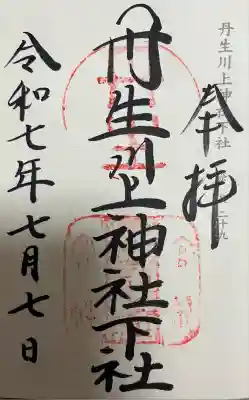 丹生川上神社下社
奉拝
丹生川上神社下社
令和七年七月七日